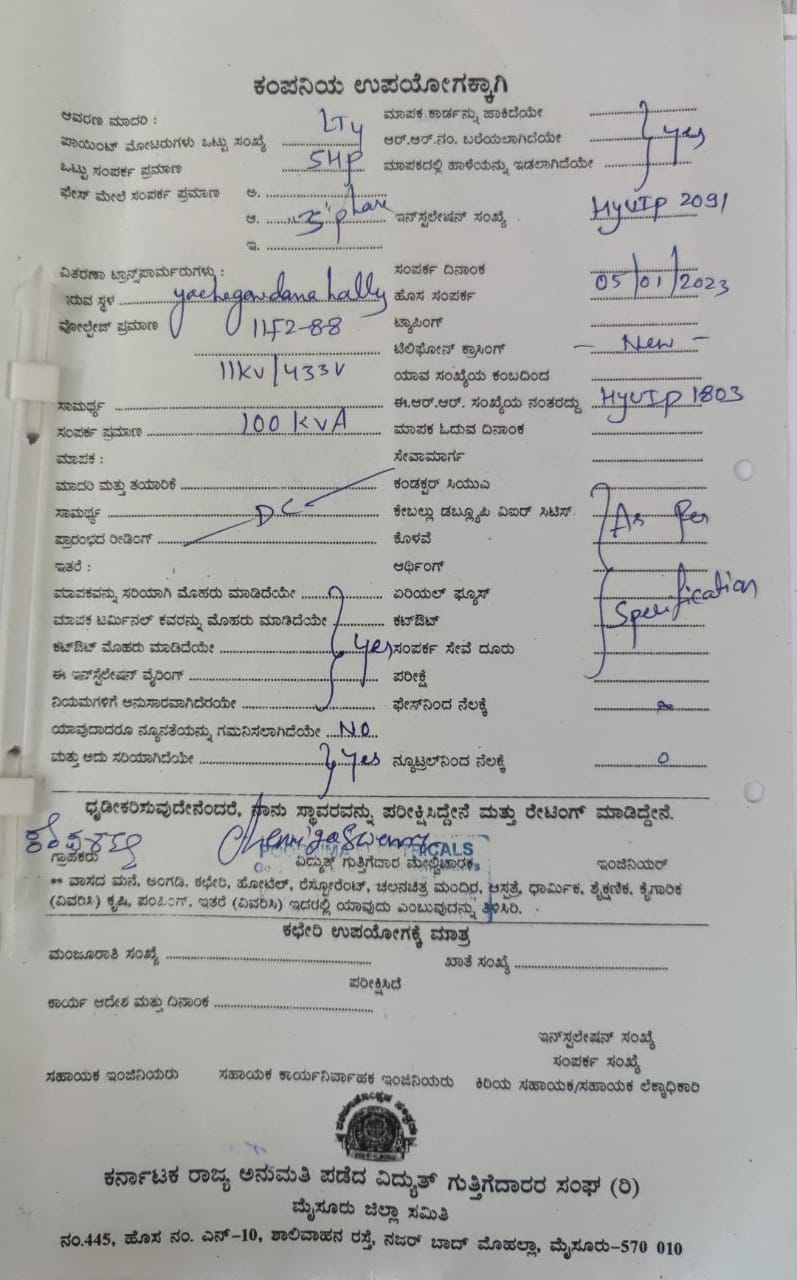 ಕಂಪನಿಯ ಉಪಯೋಗಕ್ಕಾಗಿ
ಆವರಣ ಮಾದರಿ : LT4 ಮಾಪಕ ಕಾರ್ಡನ್ನು ಹಾಕಿದೆಯೇ
ಪಾಯಿಂಟ್ ಮೋಟರುಗಳು ಒಟ್ಟು ಸಂಖ್ಯೆ ಆರ್.ಆರ್.ನಂ. ಬರೆಯಲಾಗಿದೆಯೇ yes
ಒಟ್ಟು ಸಂಪರ್ಕ ಪ್ರಮಾಣ 5HP ಮಾಪಕದಲ್ಲಿ ಹಾಳೆಯನ್ನು ಇಡಲಾಗಿದೆಯೇ
ಫೇಸ್ ಮೇಲೆ ಸಂಪರ್ಕ ಪ್ರಮಾಣ ಅ.
ಆ. 3 phase ಇನ್‌ಸ್ಟಲೇಷನ್ ಸಂಖ್ಯೆ HYUIP 2091
ಇ.
ವಿತರಣಾ ಟ್ರಾನ್ಸ್‌ಪಾರ್ಮರುಗಳು : ಸಂಪರ್ಕ ದಿನಾಂಕ 05/01/2023
ಇರುವ ಸ್ಥಳ yachegowdana hally ಹೊಸ ಸಂಪರ್ಕ
ವೋಲ್ಟೇಜ್ ಪ್ರಮಾಣ 11F2-88 ಟ್ಯಾಪಿಂಗ್
ಟೆಲಿಫೋನ್ ಕ್ರಾಸಿಂಗ್ - New -
11KV/433V ಯಾವ ಸಂಖ್ಯೆಯ ಕಂಬದಿಂದ
ಸಾಮರ್ಥ್ಯ ಈ.ಆರ್.ಆರ್. ಸಂಖ್ಯೆಯ ನಂತರದ್ದು HYUIP 1803
ಸಂಪರ್ಕ ಪ್ರಮಾಣ 100 KVA ಮಾಪಕ ಓದುವ ದಿನಾಂಕ
ಮಾಪಕ : ಸೇವಾಮಾರ್ಗ
ಮಾದರಿ ಮತ್ತು ತಯಾರಿಕೆ ಕಂಡಕ್ಟರ್ ಸಿಯುಎ
ಸಾಮರ್ಥ್ಯ DC ಕೇಬಲ್ಲು ಡಬ್ಲ್ಯೂಪಿ ವಿಐರ್ ಸಿಟಿಸ್ As Per
ಪ್ರಾರಂಭದ ರೀಡಿಂಗ್ ಕೊಳವೆ
ಇತರೆ : ಆರ್ಥಿಂಗ್
ಮಾಪಕವನ್ನು ಸರಿಯಾಗಿ ಮೊಹರು ಮಾಡಿದೆಯೇ ಏರಿಯಲ್ ಫ್ಯೂಸ್ Specification
ಮಾಪಕ ಟರ್ಮಿನಲ್ ಕವರನ್ನು ಮೊಹರು ಮಾಡಿದೆಯೇ ಕಟ್‌ಔಟ್
ಕಟ್‌ಔಟ್ ಮೊಹರು ಮಾಡಿದೆಯೇ Yes ಸಂಪರ್ಕ ಸೇವೆ ದೂರು
ಈ ಇನ್‌ಸ್ಟಲೇಷನ್ ವೈರಿಂಗ್ ಪರೀಕ್ಷೆ
ನಿಯಮಗಳಿಗೆ ಅನುಸಾರವಾಗಿದೆರಯೇ ಫೇಸ್‌ನಿಂದ ನೆಲಕ್ಕೆ
ಯಾವುದಾದರೂ ನ್ಯೂನತೆಯನ್ನು ಗಮನಿಸಲಾಗಿದೆಯೇ NO
ಮತ್ತು ಅದು ಸರಿಯಾಗಿದೆಯೇ Yes ನ್ಯೂಟ್ರಲ್‌ನಿಂದ ನೆಲಕ್ಕೆ 0
ಧೃಡೀಕರಿಸುವುದೇನೆಂದರೆ, ನಾನು ಸ್ಥಾವರವನ್ನು ಪರೀಕ್ಷಿಸಿದ್ದೇನೆ ಮತ್ತು ರೇಟಿಂಗ್ ಮಾಡಿದ್ದೇನೆ.
ಗ್ರಾಹಕರು ವಿದ್ಯುತ್ ಗುತ್ತಿಗೆದಾರ ಮೇಲ್ವಿಚಾರಕ ಇಂಜಿನಿಯರ್
** ವಾಸದ ಮನೆ, ಅಂಗಡಿ, ಕಛೇರಿ, ಹೋಟೆಲ್, ರೆಸ್ಟೋರೆಂಟ್, ಚಲನಚಿತ್ರ ಮಂದಿರ, ಆಸ್ಪತ್ರೆ, ಧಾರ್ಮಿಕ, ಶೈಕ್ಷಣಿಕ, ಕೈಗಾರಿಕ
(ವಿವರಿಸಿ) ಕೃಷಿ, ಪಂಪಿಂಗ್, ಇತರೆ (ವಿವರಿಸಿ) ಇದರಲ್ಲಿ ಯಾವುದು ಎಂಬುವುದನ್ನು ತಿಳಿಸಿರಿ.
ಕಛೇರಿ ಉಪಯೋಗಕ್ಕೆ ಮಾತ್ರ
ಮಂಜೂರಾತಿ ಸಂಖ್ಯೆ ಖಾತೆ ಸಂಖ್ಯೆ
ಪರೀಕ್ಷಿಸಿದೆ
ಕಾರ್ಯ ಆದೇಶ ಮತ್ತು ದಿನಾಂಕ
ಇನ್‌ಸ್ಟಲೇಷನ್ ಸಂಖ್ಯೆ
ಸಂಪರ್ಕ ಸಂಖ್ಯೆ
ಸಹಾಯಕ ಇಂಜಿನಿಯರು ಸಹಾಯಕ ಕಾರ್ಯನಿರ್ವಾಹಕ ಇಂಜಿನಿಯರು ಕಿರಿಯ ಸಹಾಯಕ/ಸಹಾಯಕ ಲೆಕ್ಕಾಧಿಕಾರಿ
ಕರ್ನಾಟಕ ರಾಜ್ಯ ಅನುಮತಿ ಪಡೆದ ವಿದ್ಯುತ್ ಗುತ್ತಿಗೆದಾರರ ಸಂಘ (ರಿ)
ಮೈಸೂರು ಜಿಲ್ಲಾ ಸಮಿತಿ
ನಂ.445, ಹೊಸ ನಂ. ಎನ್-10, ಶಾಲಿವಾಹನ ರಸ್ತೆ, ನಜರ್ ಬಾದ್ ಮೊಹಲ್ಲಾ, ಮೈಸೂರು-570 010